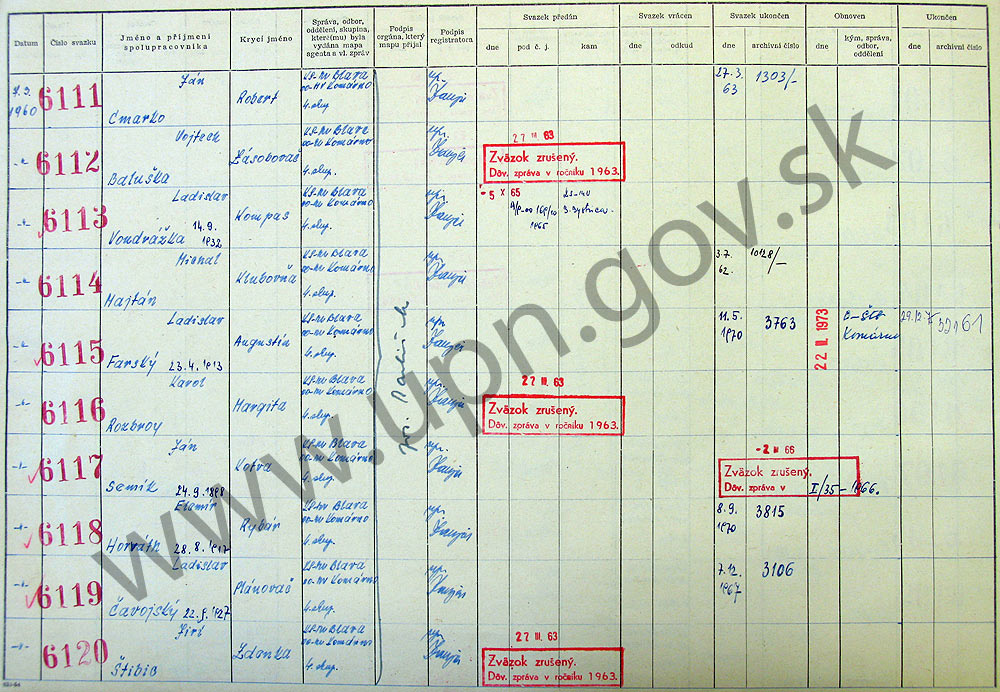 Datum
Číslo svazku
Jméno a příjmení
spolupracovníka
Krycí jméno
Správa, odbor,
oddělení, skupina,
které(mu) byla
vydána mapa
agenta s vl. zpráv
Podpis
orgána, který
mapu přijal
Podpis
registratora
Svazek předán
dne
pod č. j.
kam
Svazek vrácen
dne
odkud
Svazek ukončen
dne
archivní číslo
Obnoven
dne
kým, správa,
odbor,
oddělení
Ukončen
dne
archivní číslo
1960
6111
Ján
Cmarko
Robert
KS-MV Blava
oo-MV Komárno
4. skup.
27.3.
63
1303/-
6112
Vojtech
Baluška
Zásobovač
KS-MV Blava
oo-MV Komárno
4. skup.
27 III 63
Zväzok zrušený.
Dôv. zpráva v ročníku 1963.
6113
Ladislav
Vondrážka
14.9.
1932
Kompas
KS-MV Blava
oo-MV Komárno
4. skup.
-5 X 65
1965
B. Bystrica
6114
Michal
Hajtán
Klubovňa
KS-MV Blava
oo-MV Komárno
4. skup.
3.7.
62.
10128/-
6115
Ladislav
Farský 23.4.1913
Augustín
KS-MV Blava
oo-MV Komárno
4. skup.
11.5.
1970
3763
22 II. 1973
Komárno
6116
Karol
Rozbroy
Margita
KS-MV Blava
oo-MV Komárno
4. skup.
27 III. 63
Zväzok zrušený.
Dôv. zpráva v ročníku 1963.
6117
Ján
Semik 24.9.1898
Kotva
KS-MV Blava
oo-MV Komárno
4. skup.
-2 III 66
Zväzok zrušený.
Dôv. zpráva v I/35-1966.
6118
Elamír
Horváth 28.8.1917
Rybár
KS-MV Blava
oo-MV Komárno
4. skup.
8.9.
1970
3815
6119
Ladislav
Čavojský 22.5.1927
Plánovač
KS-MV Blava
oo-MV Komárno
4. skup.
7.12.
1967
3106
6120
Jiří
Štibic
Zdenka
KS-MV Blava
oo-MV Komárno
4. skup.
27 III. 63
Zväzok zrušený.
Dôv. zpráva v ročníku 1963.
www.upn.gov.sk